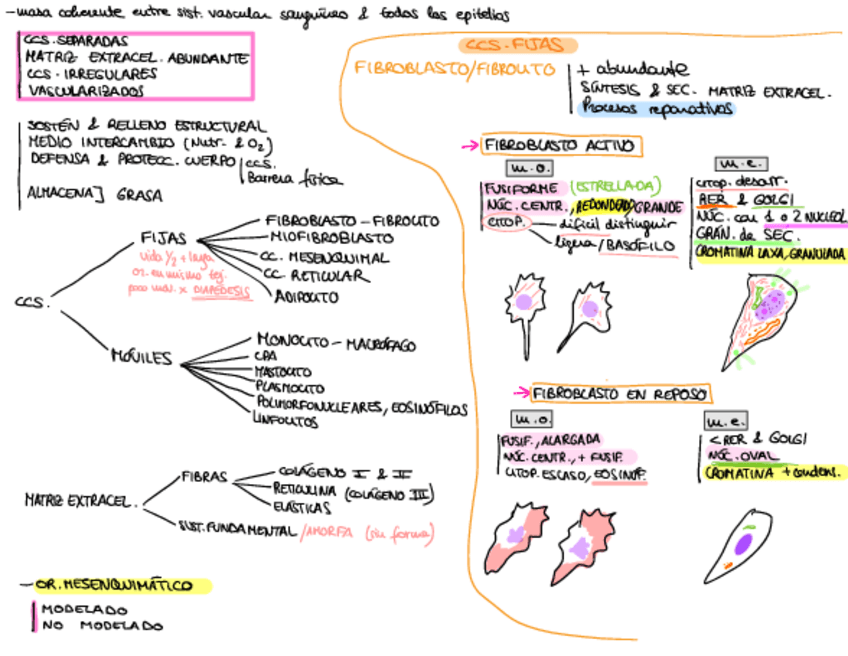 -masa coherente entre sist. vascular sanguíneo & todos los epitelios
CCS. SEPARADAS
MATRIZ EXTRACEL. ABUNDANTE
CCS. IRREGULARES
VASCULARIZADOS
SOSTÉN & RELLENO ESTRUCTURAL
MEDIO INTERCAMBIO (Nutr. & O₂)
DEFENSA & PROTECC. CUERPO
CCS.
Barrera física
ALMACENA] GRASA
CCS.
FIJAS
vida ½ + larga
en mismo tej.
poco mov. x DIAPÉDESIS
FIBROBLASTO - FIBROCITO
MIOFIBROBLASTO
CC. MESENQUIMAL
CC RETICULAR
ADIPOCITO
MÓVILES
MONOCITO - MACRÓFAGO
CPA
MASTOCITO
PLASMOCITO
POLIMORFONUCLEARES, EOSINÓFILOS
LINFOCITOS
MATRIZ EXTRACEL.
FIBRAS
COLÁGENO I & II
RETICULINA (COLÁGENO III)
ELÁSTICAS
SUST. FUNDAMENTAL / AMORFA (sin forma)
- OR. MESENQUIMÁTICO
MODELADO
NO MODELADO
CCS. FIJAS
FIBROBLASTO/FIBROCITO
+ abundante
SÍNTESIS & SEC. MATRIZ EXTRACEL.
Procesos reparativos
→ FIBROBLASTO ACTIVO
m.o.
FUSIFORME (ESTRELLADA)
NÚC. CENTR., REDONDEADO, GRANDE
CITOP.
difícil distinguir
ligera/BASÓFILO
m.e.
citop. desarr.
RER & GOLGI
NÚC. con 1 o 2 NUCLEOL.
GRÁN. de SEC.
CROMATINA LAXA, GRANULADA
→ FIBROBLASTO EN REPOSO
m.o.
FUSIF., ALARGADA
NÚC. CENTR., + FUSIF.
CITOP. ESCASO, EOSINÓF.
m.e.
< RER & GOLGI
NÚC. OVAL
CROMATINA + condens.